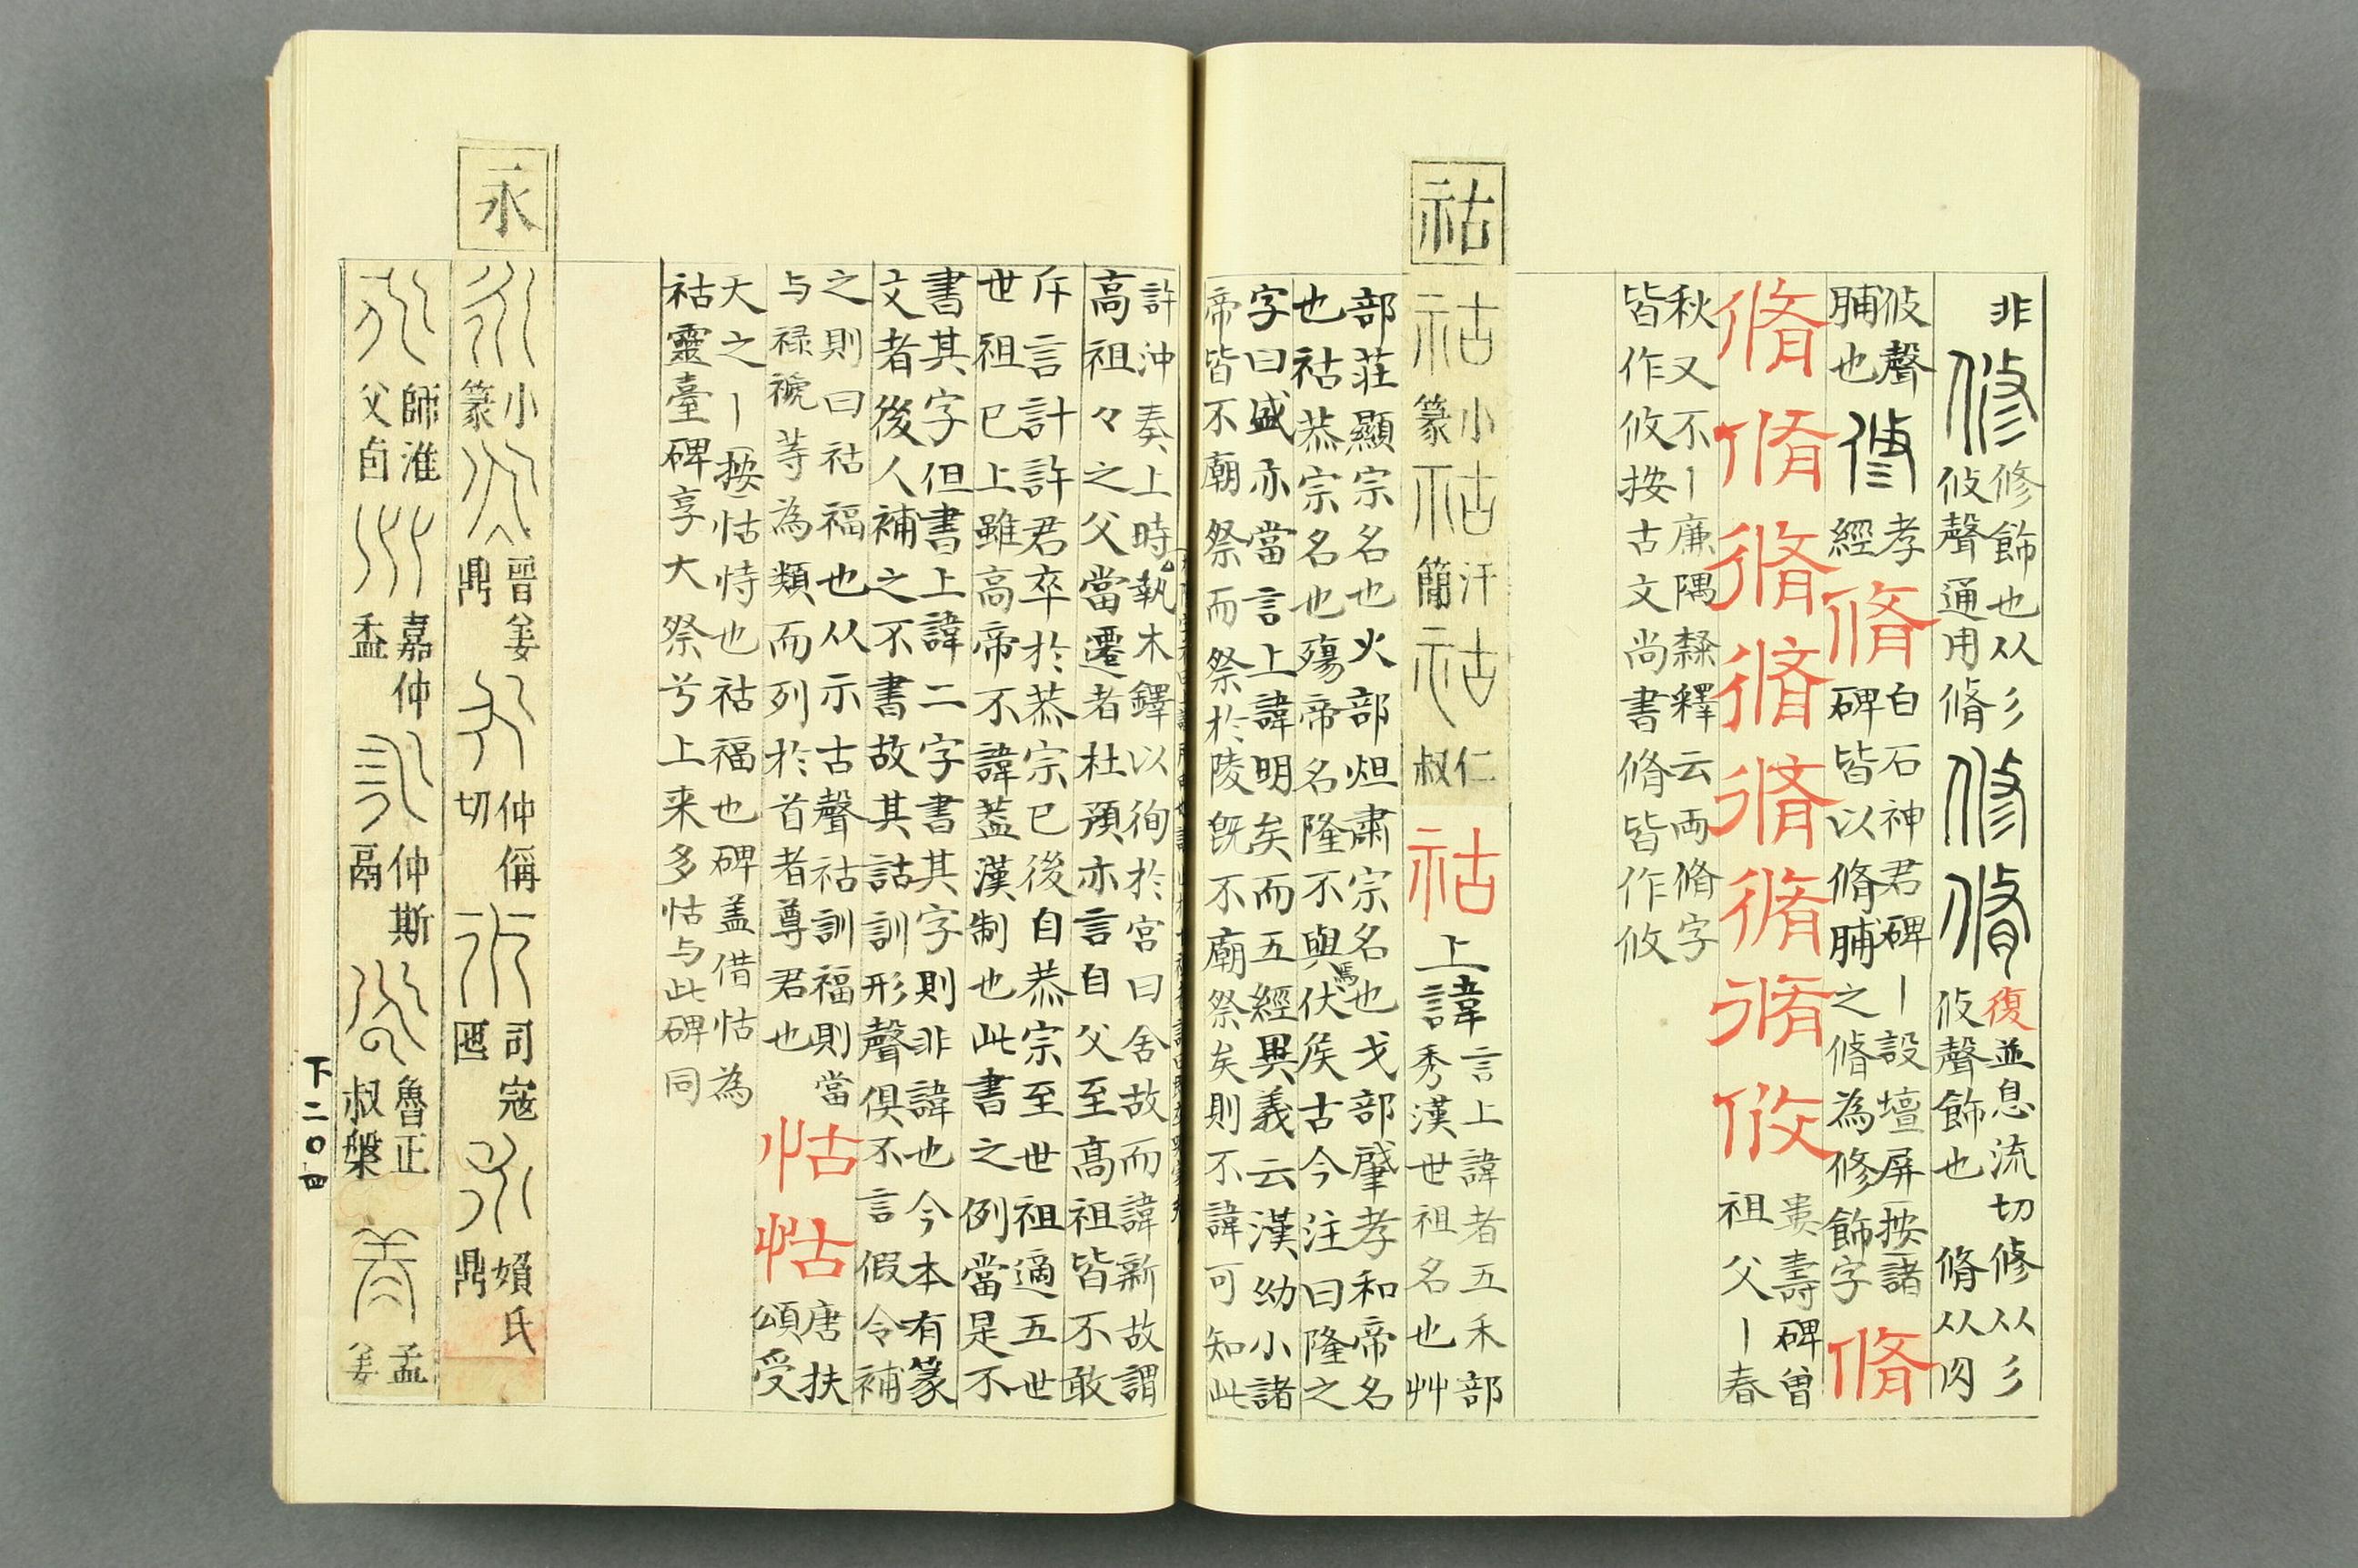 非修修飾也从彡
攸聲通用脩
修脩復並息流切修从彡
攸聲飾也 脩从肉
攸聲
脯也
修孝
經
脩白石神君碑丨設壇屏按諸
碑皆以脩脯之脩為修飾字
脩
脩脩脩脩脩脩脩攸婁壽碑曾
祖父丨春
秋又不丨廉隅隸釋云兩脩字
皆作攸按古文尚書脩皆作攸
祜
祜小篆祜汗簡祜仁叔祜上諱言上諱者五禾部
秀漢世祖名也艸
部莊顯宗名也火部炟肅宗名也戈部肇孝和帝名
也祜恭宗名也殤帝名隆不與焉伏侯古今注曰隆之
字曰盛亦當言上諱明矣而五經異義云漢幼小諸
帝皆不廟祭而祭於陵旣不廟祭矣則不諱可知此
許沖奏上時執木鐸以徇於宮曰舍故而諱新故謂
高祖々之父當遷者杜預亦言自父至高祖皆不敢
斥言計許君卒於恭宗已後自恭宗至世祖適五世
世祖已上雖高帝不諱蓋漢制也此書之例當是不
書其字但書上諱二字書其字則非諱也今本有篆
文者後人補之不書故其詁訓形聲俱不言假令補
之則曰祜福也从示古聲祜訓福則當
与祿禠等為類而列於首者尊君也
怙怙唐扶
頌受
天之丨按怙恃也祜福也碑盖借怙為
祜靈臺碑享大祭兮上来多怙与此碑同
永
永小篆永晉姜鼎永仲偁切永司寇匜永氏鼎
永師淮父卣永嘉仲盉永仲斯鬲永魯正叔槃羕孟姜
下二〇四